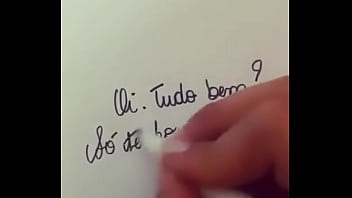 Oi. Tudo bem?
Só de